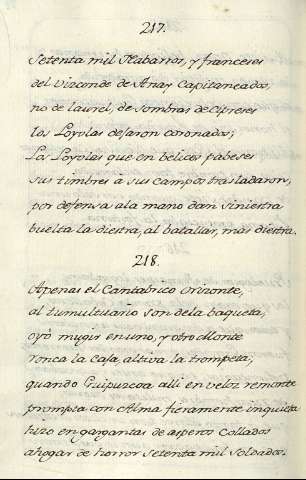 217.
Setenta mil Nabarros, y franceses
del Vizconde de Anay Capitaneados,
no de laurel, de sombras de Cipreses
los Loyolas dejaron coronados;
Los Loyolas que en belices pabeses
sus timbres à sus campos trasladaron,
por defensa a la mano dan siniestra
buelta la diestra, al batallar, mas diestra.
218.
Apenas el Cantabrico Orizonte,
al tumultuario son dela baqueta,
oyò mugir en uno, y otro Monte
ronca la Caja, altiva la trompeta;
quando Guipuzcoa alli en veloz remonte
prompta con Alma fieramente inquieta
hizo en gargantas de asperos Collados
ahogar de horror setenta mil soldados.